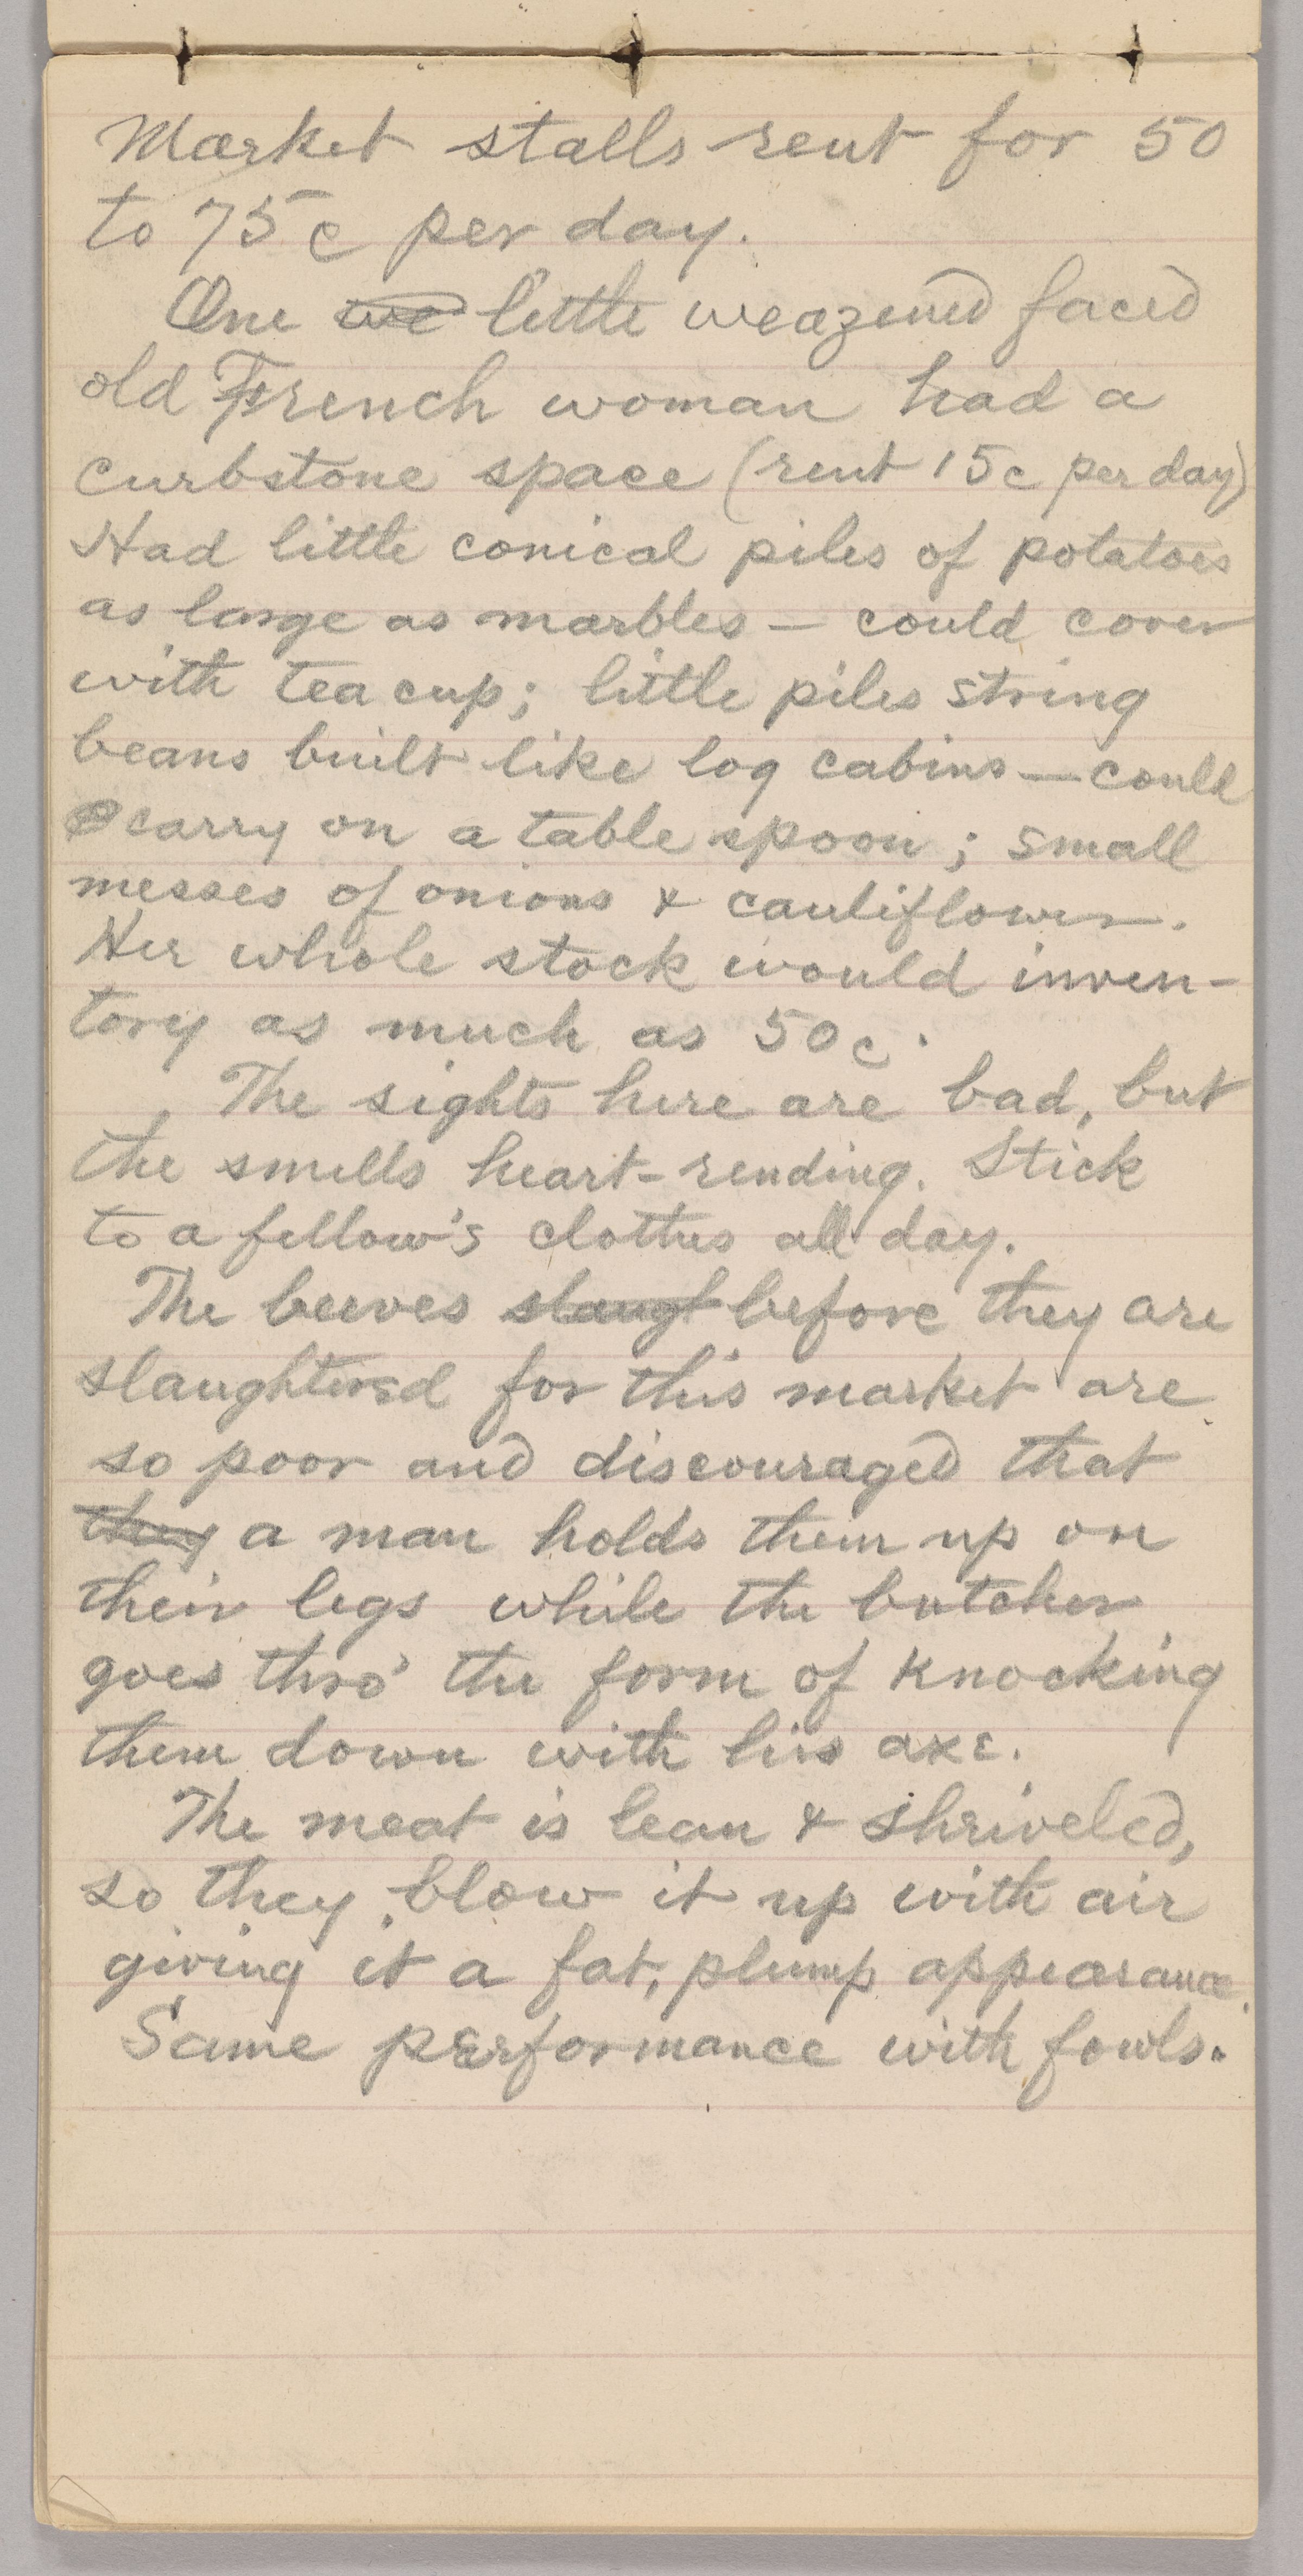 Market stalls rent for 50
to 75c per day.
One we little weazened faced
old French woman had a
curbstone space (rent 15c per day)
Had little conical piles of potatoes
as large as marbles — could cover
with tea cup; little piles string
beans built like log cabins — could
carry on a table spoon; small
messes of onions & cauliflower.
Her whole stock would inven-
tory as much as 50c.
The sights here are bad, but
the smells heart-rending. Stick
to a fellow's clothes all day.
The beeves slaugt before they are
slaughtered for this market are
so poor and discouraged that
they a man holds them up on
their legs while the butcher
goes thro' the form of knocking
them down with his axe.
The meat is lean & shriveled,
so they blow it up with air
giving it a fat, plump appearance.
Same performance with fowls.